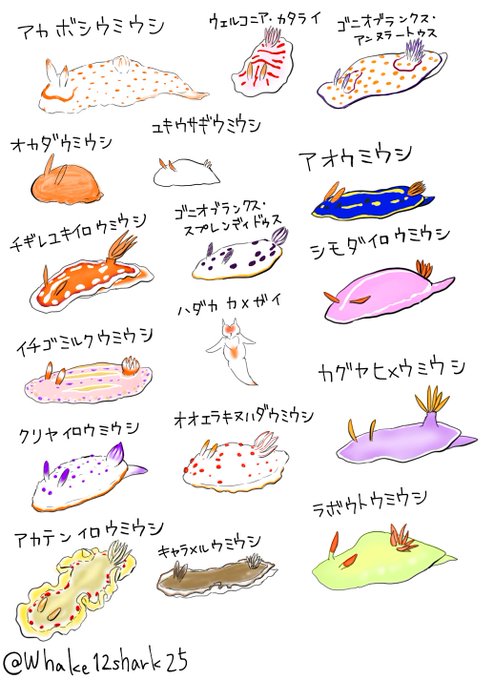 アカボシウミウシ
ウェルコニア・カタライ
ゴニオブランクス・
アンヌラートゥス
オカダウミウシ
ユキウサギウミウシ
アオウミウシ
チギレユキイロウミウシ
ゴニオブランクス・
スプレンディドゥス
シモダイロウミウシ
イチゴミルクウミウシ
ハダカカメガイ
カグヤヒメウミウシ
クリヤイロウミウシ
オオエラキヌハダウミウシ
ラボウトウミウシ
アカテンイロウミウシ
キャラメルウミウシ
@Whake12shark25